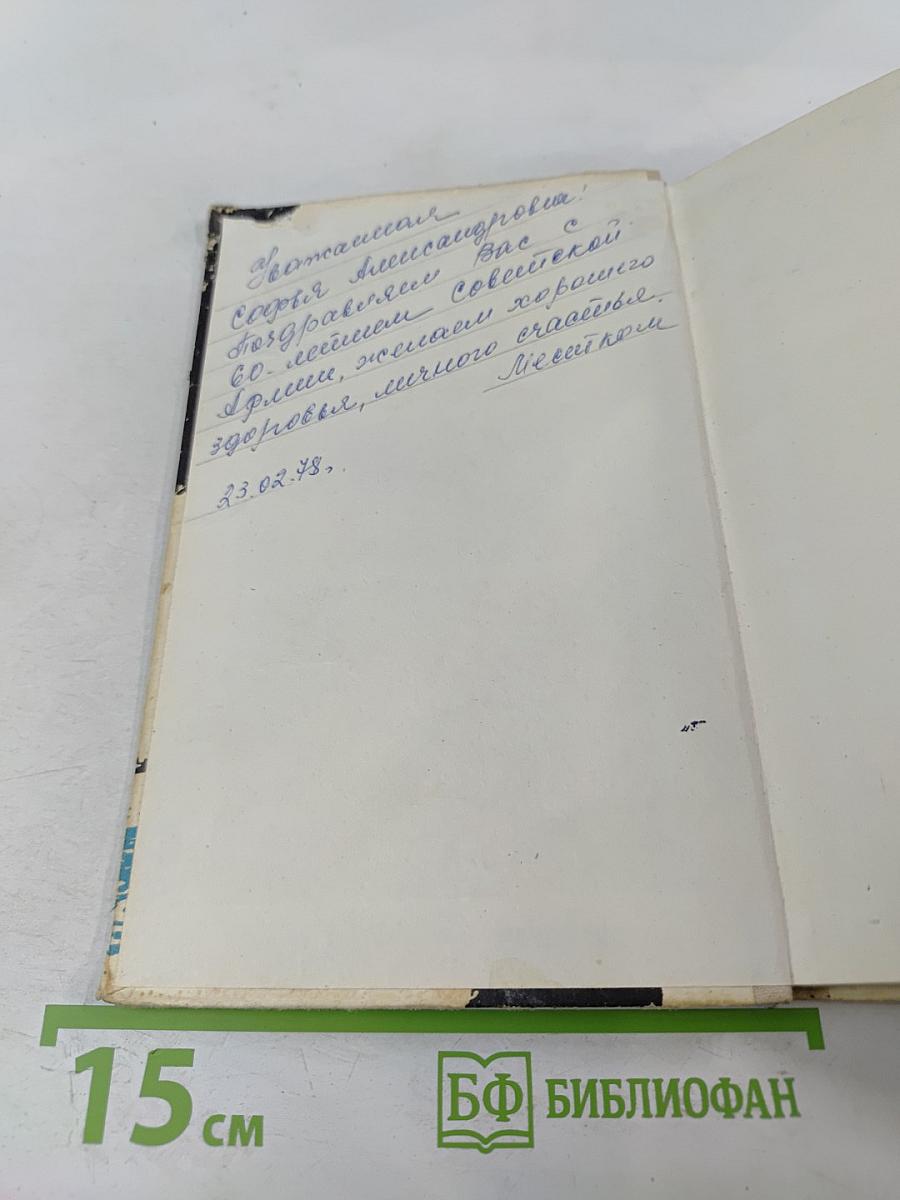 Уважаемая
Софья Александровна!
Поздравляем Вас с
60-летием Советской
Армии, желаем хорошего
здоровья, личного счастья.
Местком
23.02.78г.
15 см
БФ БИБЛИОФАН